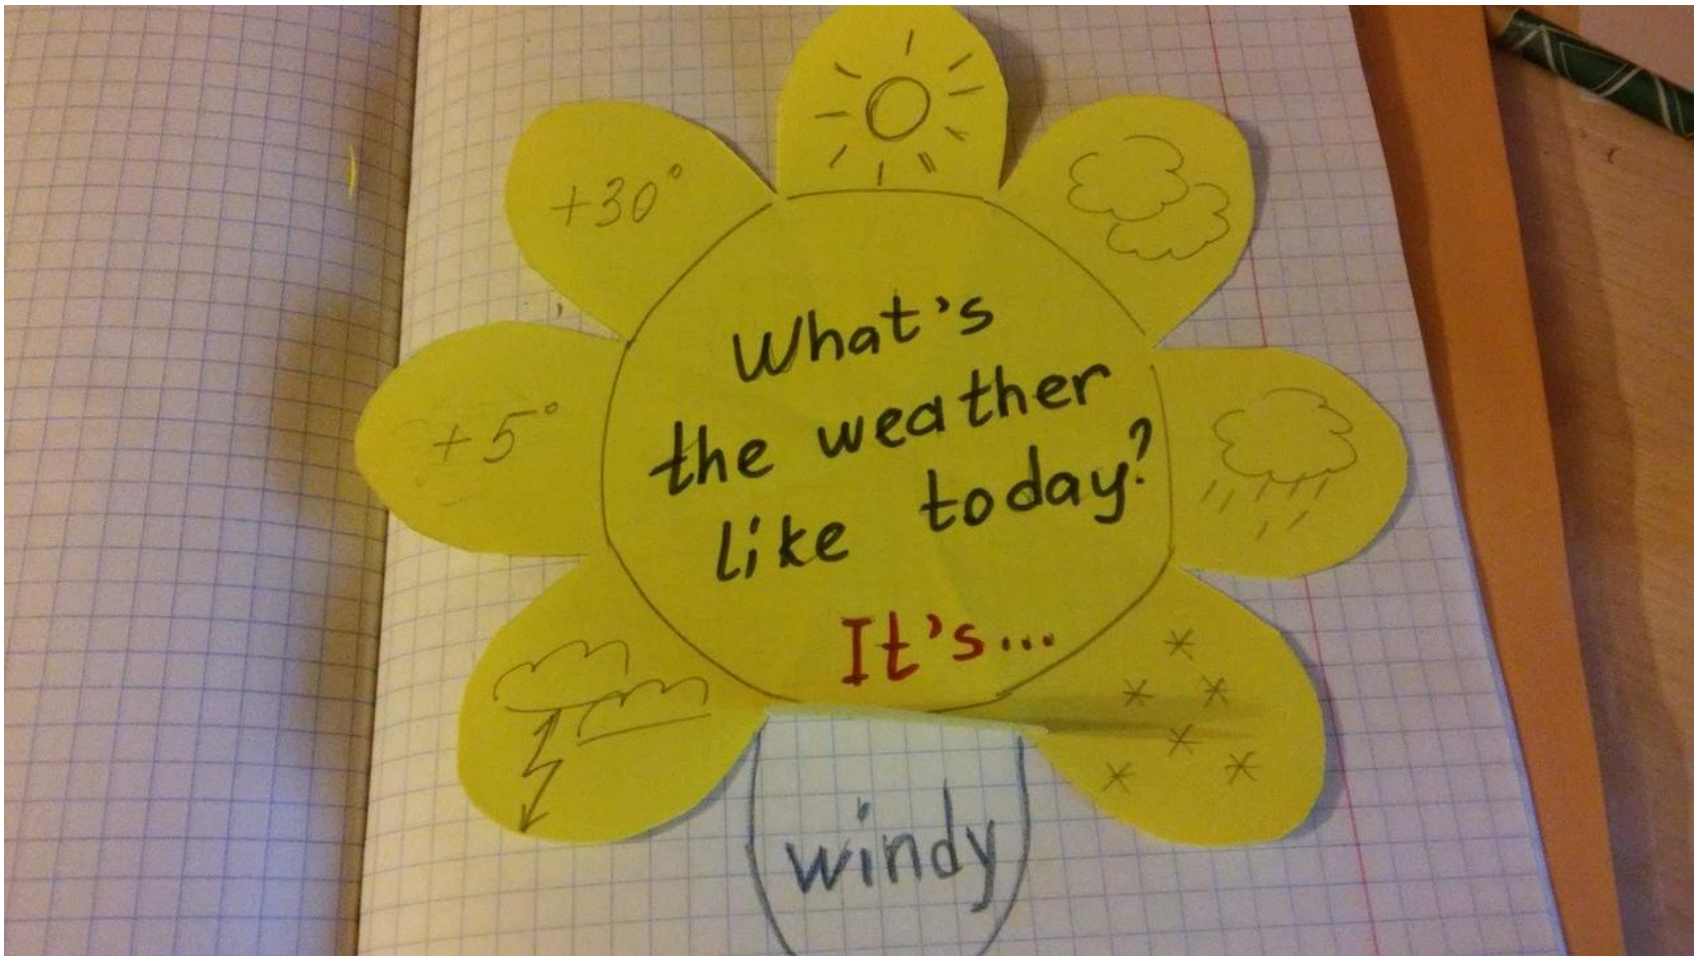 +30°
What's
the weather
like today?
It's...
+5°
windy